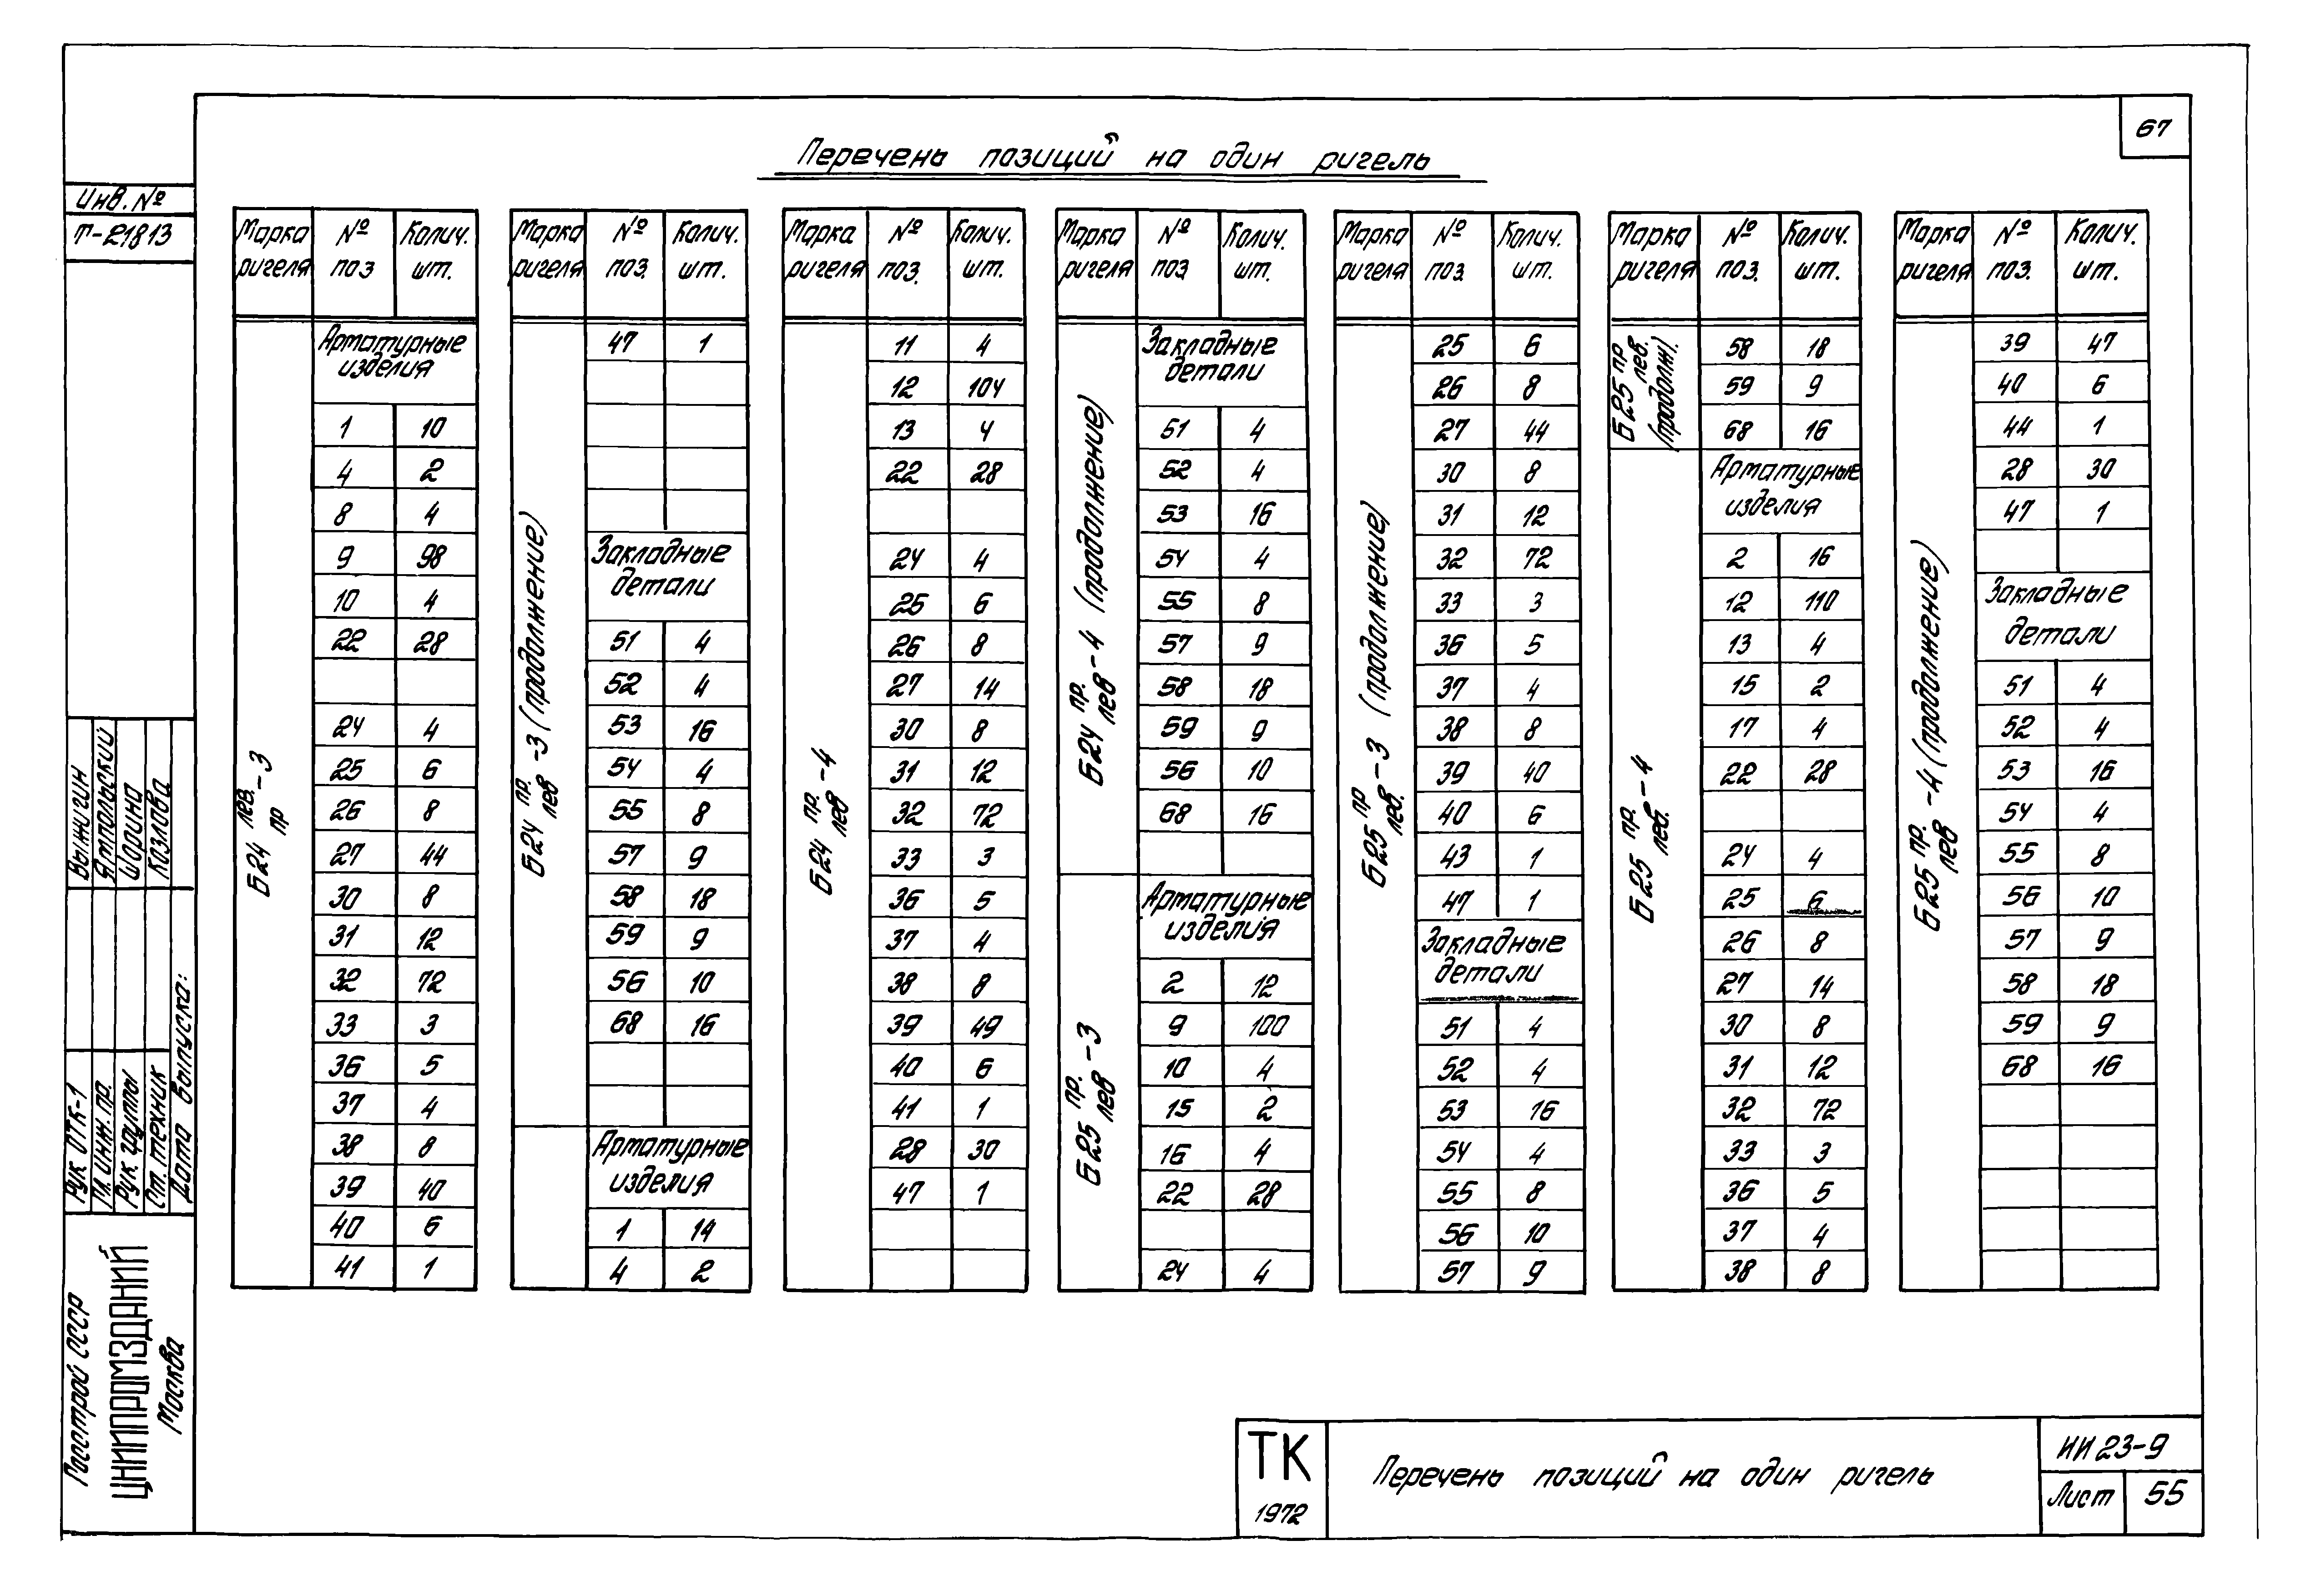 67
Перечень позиций на один ригель
Инв. №
Т-21813
Марка ригеля | № поз | Колич. шт.
Б24 лев. пр -3
Арматурные изделия
1 10
4 2
8 4
9 98
10 4
22 28
24 4
25 6
26 8
27 44
30 8
31 12
32 72
33 3
36 5
37 4
38 8
39 40
40 6
41 1
Марка ригеля | № поз. | Колич. шт.
Б24 пр. лев -3 (продолжение)
47 1
Закладные детали
51 4
52 4
53 16
54 4
55 8
57 9
58 18
59 9
56 10
68 16
Арматурные изделия
1 14
4 2
Марка ригеля | № поз. | Колич. шт.
Б24 пр. лев -4
11 4
12 104
13 4
22 28
24 4
25 6
26 8
27 14
30 8
31 12
32 72
33 3
36 5
37 4
38 8
39 49
40 6
41 1
28 30
47 1
Марка ригеля | № поз. | Колич. шт.
Б24 пр. лев -4 (продолжение)
Закладные детали
51 4
52 4
53 16
54 4
55 8
57 9
58 18
59 9
56 10
68 16
Б25 пр. лев -3
Арматурные изделия
2 12
9 100
10 4
15 2
16 4
22 28
24 4
Марка ригеля | № поз | Колич. шт.
Б25 пр лев. -3 (продолжение)
25 6
26 8
27 44
30 8
31 12
32 72
33 3
36 5
37 4
38 8
39 40
40 6
43 1
47 1
Закладные детали
51 4
52 4
53 16
54 4
55 8
56 10
57 9
Марка ригеля | № поз. | Колич. шт.
Б25 пр лев. (продолж).
58 18
59 9
68 16
Б25 пр. лев. -4
Арматурные изделия
2 16
12 110
13 4
15 2
17 4
22 28
24 4
25 6
26 8
27 14
30 8
31 12
32 72
33 3
36 5
37 4
38 8
Марка ригеля | № поз. | Колич. шт.
Б25 пр. лев -4 (продолжение)
39 47
40 6
44 1
28 30
47 1
Закладные детали
51 4
52 4
53 16
54 4
55 8
56 10
57 9
58 18
59 9
68 16
Рук ОТК-1 Выжигин
Гл. инж. пр. Ямпольский
Рук. группы Шорина
Ст. техник Козлова
Дата выпуска:
Госстрой СССР
ЦНИИПРОМЗДАНИЙ
Москва
ТК
1972
Перечень позиций на один ригель
ИИ 23-9
Лист 55